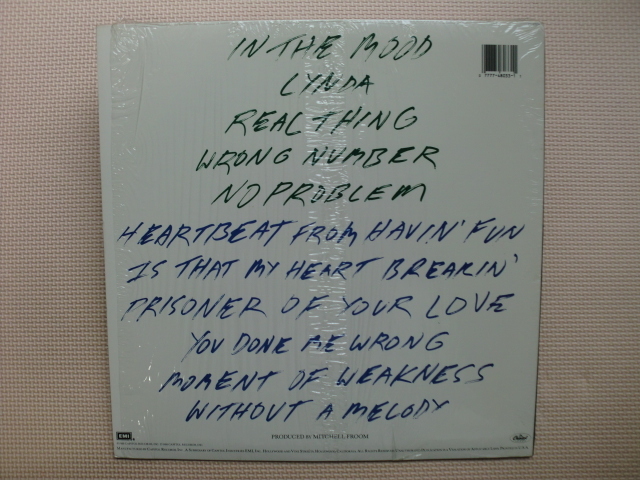 IN THE MOOD
LYNDA
REAL THING
WRONG NUMBER
NO PROBLEM
HEARTBEAT FROM HAVIN' FUN
IS THAT MY HEART BREAKIN'
PRISONER OF YOUR LOVE
YOU DONE ME WRONG
MOMENT OF WEAKNESS
WITHOUT A MELODY
PRODUCED BY MITCHELL FROOM
EMI
Capitol